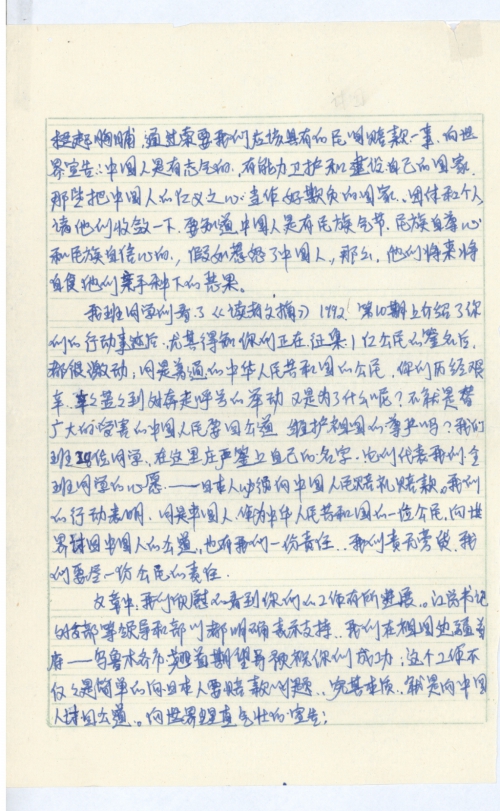 挺起胸脯,通过索要我们应该具有的民间赔款一事,向世
界宣告:中国人是有志气的,有能力卫护和建设自己的国家
那些把中国人的仁义之心当作好欺负的国家、团体和个人
请他们收敛一下,要知道中国人是有民族气节、民族自尊心
和民族自信心的,假如惹怒了中国人,那么,他们将来将
自食他们亲手种下的恶果。
我班同学们看了《读者文摘》1992第10期上介绍了你
们的行动事迹后,尤其得知你们正在征集1亿公民的签名后,
都很激动;同是普通的中华人民共和国的公民,你们历经艰
辛,到处奔走呼号的举动又是为了什么呢?不就是替
广大的受害的中国人民要回公道 维护祖国的尊严吗?我们
班38位同学,在这里庄严签上自己的名字,它们代表我们全
班同学的心愿——日本人必须向中国人民赔礼赔款。我们
的行动表明,同是中国人,作为中华人民共和国的一位公民,向世
界讨回中国人的公道,也有我们一份责任。我们责无旁贷,我
们要尽一份公民的责任。
文章中,我们欣慰的看到你们的工作有所进展。江总书记
的等领导和部门都明确表示支持。我们在祖国的边疆首
府——乌鲁木齐市 期望与祝福你们成功;这个工作不
仅仅是简单的向日本人要赔款问题,究其本质,就是向中国
人讨回公道。向世界理直气壮的宣告: